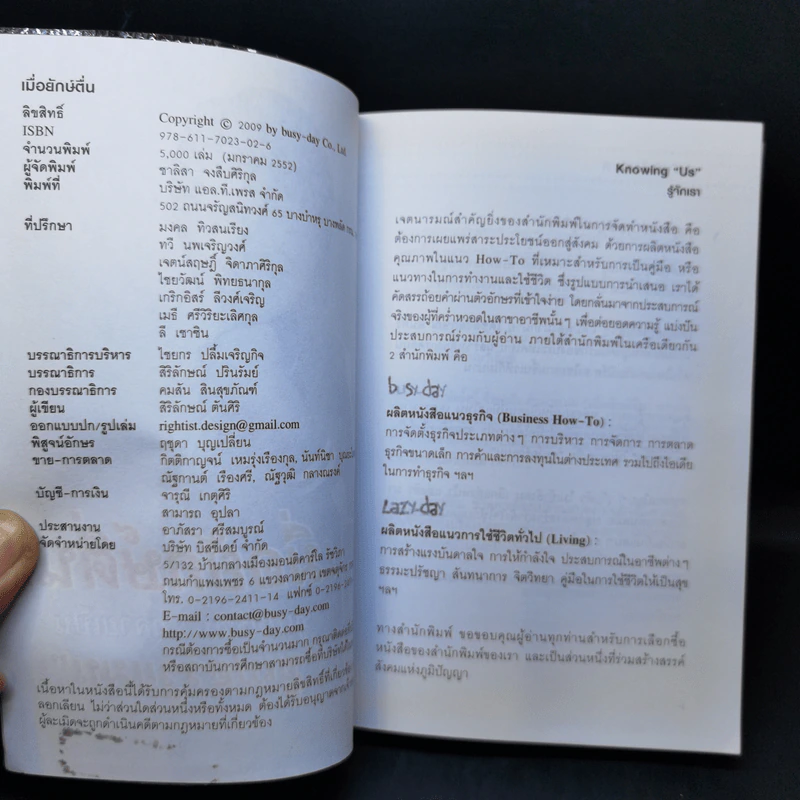 เมื่อยักษ์ตื่น
ลิขสิทธิ์ Copyright © 2009 by busy-day Co., Ltd.
ISBN 978-611-7023-02-6
จำนวนพิมพ์ 5,000 เล่ม (มกราคม 2552)
ผู้จัดพิมพ์ ชาลิสา จงสืบศิริกุล
พิมพ์ที่ บริษัท แอล.ที.เพรส จำกัด
502 ถนนจรัญสนิทวงศ์ 65 บางบำหรุ บางพลัด
ที่ปรึกษา มงคล ทิวสนเรียง
ทวี นพเจริญวงศ์
เจตน์สฤษฎิ์ จิดาภาศิริกุล
ไชยวัฒน์ พิทยธนากุล
เกริกอิสร์ ลีวงศ์เจริญ
เมธี ศรีวิริยะเลิศกุล
ลี เซาซิน
บรรณาธิการบริหาร ไชยกร ปลื้มเจริญกิจ
บรรณาธิการ สิริลักษณ์ ปรินรัมย์
กองบรรณาธิการ คมสัน สินสุขภัณฑ์
ผู้เขียน สิริลักษณ์ ตันศิริ
ออกแบบปก/รูปเล่ม rightist.design@gmail.com
พิสูจน์อักษร ฤชุดา บุญเปลี่ยน
ขาย-การตลาด กิตติกาญจน์ เหมรุ่งเรืองกุล, นันท์นิชา
ณัฐกานต์ เรืองศรี, ณัฐวุฒิ กลางณรงค์
บัญชี-การเงิน จารุณี เกตุศิริ
สามารถ อุปลา
ประสานงาน อาภัสรา ศรีสมบูรณ์
จัดจำหน่ายโดย บริษัท บิสซี่เดย์ จำกัด
5/132 บ้านกลางเมืองมอนติคาร์โล รัชวิภา
ถนนกำแพงเพชร 6 แขวงลาดยาว เขตจตุจักร
โทร. 0-2196-2411-14 แฟกซ์
E-mail : contact@busy-day.com
http://www.busy-day.com
กรณีต้องการซื้อเป็นจำนวนมาก กรุณาติดต่อ
หรือสถาบันการศึกษาสามารถซื้อที่บริษัทได้
เนื้อหาในหนังสือนี้ได้รับการคุ้มครองตามกฎหมายลิขสิทธิ์
ลอกเลียน ไม่ว่าส่วนใดส่วนหนึ่งหรือทั้งหมด ต้องได้รับอนุญาต
ผู้ละเมิดจะถูกดำเนินคดีตามกฎหมายที่เกี่ยวข้อง
Knowing "Us"
รู้จักเรา
เจตนารมณ์สำคัญยิ่งของสำนักพิมพ์ในการจัดทำหนังสือ คือ
ต้องการเผยแพร่สาระประโยชน์ออกสู่สังคม ด้วยการผลิตหนังสือ
คุณภาพในแนว How-To ที่เหมาะสำหรับการเป็นคู่มือ หรือ
แนวทางในการทำงานและใช้ชีวิต ซึ่งรูปแบบการนำเสนอ เราได้
คัดสรรถ้อยคำผ่านตัวอักษรที่เข้าใจง่าย โดยกลั่นมาจากประสบการณ์
จริงของผู้ที่คร่ำหวอดในสาขาอาชีพนั้นๆ เพื่อต่อยอดความรู้ แบ่งปัน
ประสบการณ์ร่วมกับผู้อ่าน ภายใต้สำนักพิมพ์ในเครือเดียวกัน
2 สำนักพิมพ์ คือ
busy-day
ผลิตหนังสือแนวธุรกิจ (Business How-To) :
การจัดตั้งธุรกิจประเภทต่างๆ การบริหาร การจัดการ การตลาด
ธุรกิจขนาดเล็ก การค้าและการลงทุนในต่างประเทศ รวมไปถึงไอเดีย
ในการทำธุรกิจ ฯลฯ
Lazy-day
ผลิตหนังสือแนวการใช้ชีวิตทั่วไป (Living) :
การสร้างแรงบันดาลใจ การให้กำลังใจ ประสบการณ์ในอาชีพต่างๆ
ธรรมะปรัชญา สันทนาการ จิตวิทยา คู่มือในการใช้ชีวิตให้เป็นสุข
ฯลฯ
ทางสำนักพิมพ์ ขอขอบคุณผู้อ่านทุกท่านสำหรับการเลือกซื้อ
หนังสือของสำนักพิมพ์ของเรา และเป็นส่วนหนึ่งที่ร่วมสร้างสรรค์
สังคมแห่งภูมิปัญญา